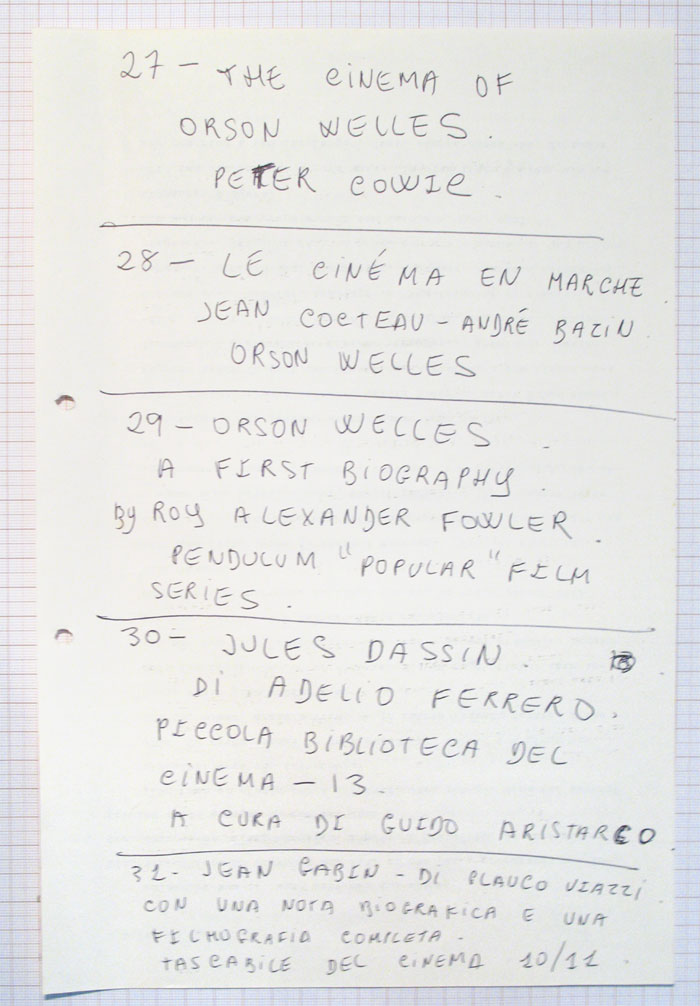 27 - THE CINEMA OF
ORSON WELLES.
PETER COWIE.
28 - LE CINÉMA EN MARCHE
JEAN COCTEAU - ANDRÉ BAZIN.
ORSON WELLES
29 - ORSON WELLES.
A FIRST BIOGRAPHY.
By ROY ALEXANDER FOWLER.
PENDULUM "POPULAR" FILM
SERIES.
30 - JULES DASSIN.
DI ADELIO FERRERO.
PICCOLA BIBLIOTECA DEL
CINEMA - 13.
A CURA DI GUIDO ARISTARCO
31 - JEAN GABIN - DI VIAZZI
CON UNA NOTA BIOGRAFICA E UNA
FILMOGRAFIA COMPLETA.
TASCABILE DEL CINEMA 10/11.